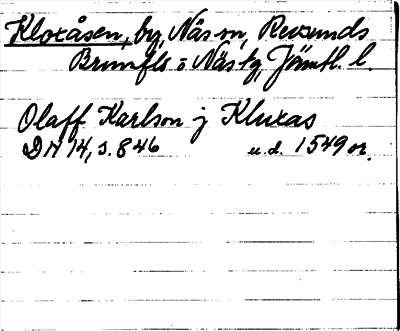 Kloxåsen, by, Näs sn, Revsunds
Brunfls o Näs tg, Jämtl. l.
Olaff Karlson j Kluxas
DN 14, s. 846 u.d. 1549 or.